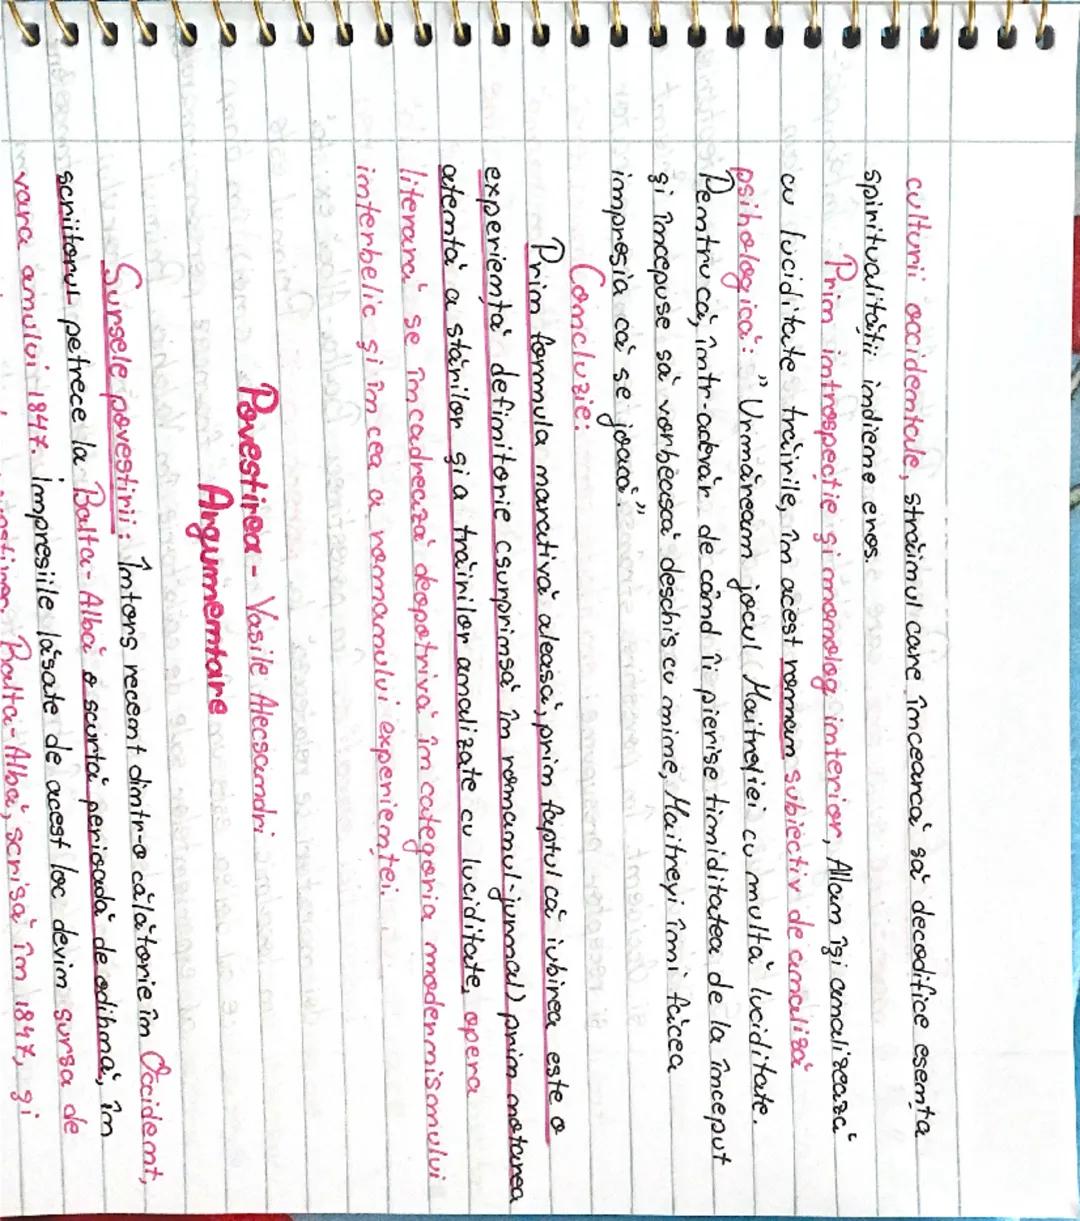 culturii occidentale, străinul care încearcă să decodifice esența
spiritualității indiene eros.
Prin introspecție și monolog interior, Allan își analizează
cu luciditate trăirile, în acest roman subiectiv de analiză
psihologică: "Urmăream jocul Maitreyiei cu multă luciditate.
Pentru că, într-adevăr de când îi pierise timiditatea de la început
și începuse să vorbească deschis cu mine, Maitreyi îmi făcea
impresia că se joacă."
Concluzie:
Prin formula narativă aleasă, prin faptul că iubirea este o
experiență definitorie (surprinsă în romanul-jurnal) prin notarea
atentă a stărilor și a trăirilor analizate cu luciditate, opera
literară se încadrează deopotrivă în categoria modernismului
interbelic și în cea a romanului experienței.
Povestirea - Vasile Alecsandri
Argumentare
Sursele povestirii: Întors recent dintr-o călătorie în Occident,
scriitorul petrece la Balta-Albă o scurtă perioadă de odihnă, în
vara anului 1847. Impresiile lăsate de acest loc devin sursa de
Balta-Albă, scrisă în 1847, și